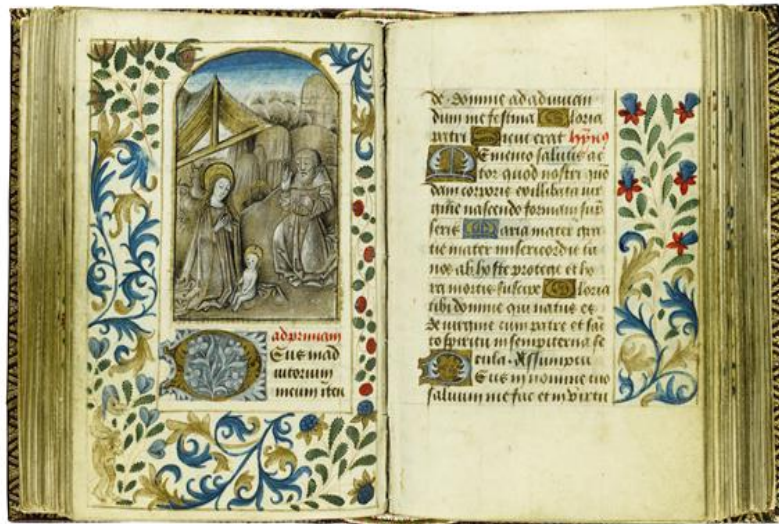 ad primam
Deus in ad
iutorium
meum inten
de. Domine ad adiuvan
dum me festina Gloria
patri Sicut erat
Memento salutis auc
tor quod nostri quon
dam corporis ex illibata vir
gine nascendo formam sump
seris Maria mater gra
tie mater misericordie tu
nos ab hoste protege et ho
ra mortis suscipe Gloria
tibi domine qui natus es
de virgine cum patre et sanc
to spiritu in sempiterna se
cula. Assumpta
Deus in nomine tuo
salvum me fac et in virtu